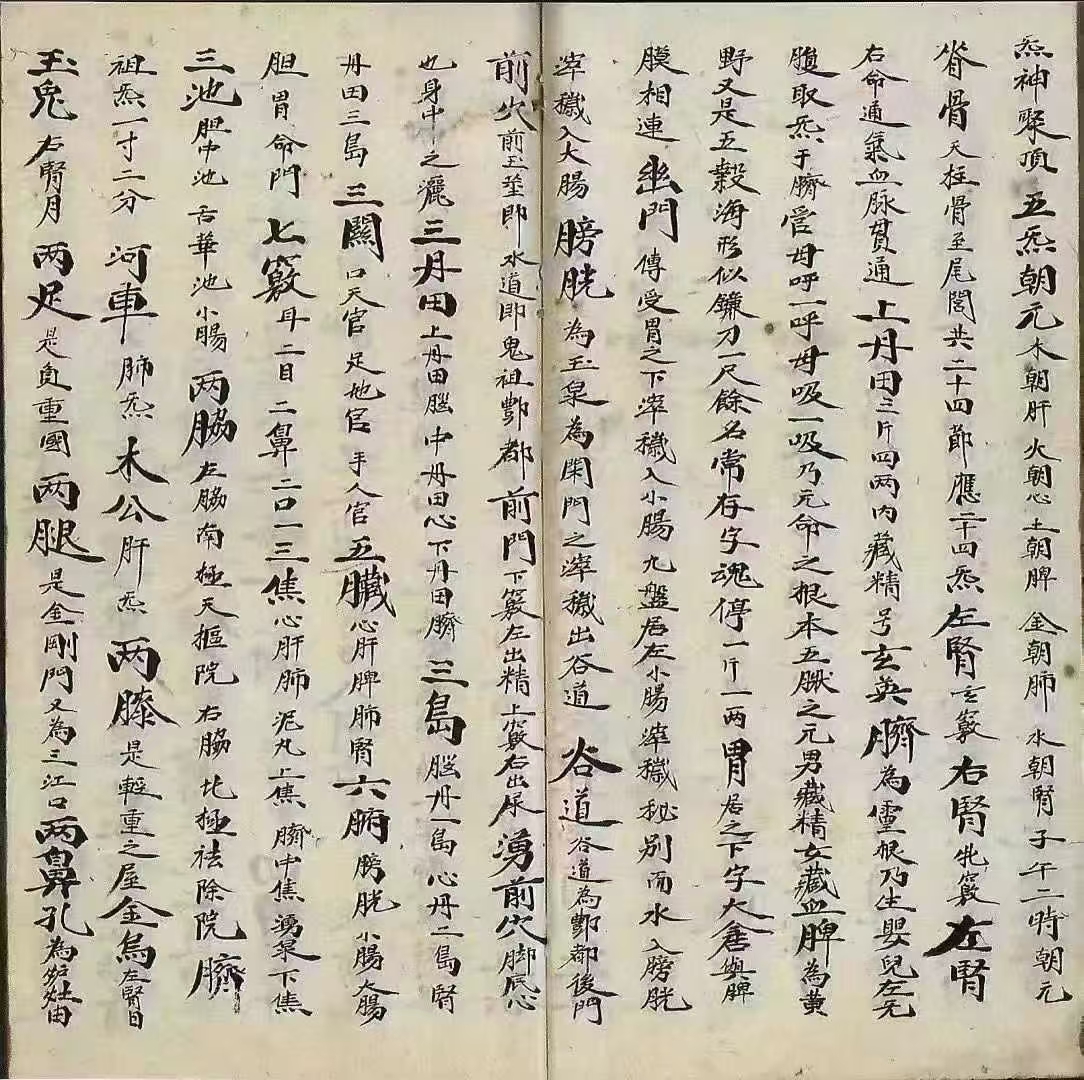 炁神聚頂五炁朝元木朝肝火朝心土朝脾金朝肺水朝腎子午二時朝元
脊骨天柱骨至尾閭共二十四節應二十四炁左腎玄竅右腎牝竅左腎
右命通氣血脉貫通上丹田三斤四两內藏精号玄英臍為靈根乃生嬰兒左无
腹取炁于臍管母呼一呼母吸一吸乃元命之根本五臟之元男藏精女藏血脾為黄
野又是五穀海形似鐮刀一尺餘名常存字魂停一斤一两胃居之下字大倉與脾
膜相連幽門傳受胃之下滓穢入小腸九盤居左小腸滓穢秘別而水入膀胱
滓穢入大腸膀胱為玉泉為閑門之滓穢出谷道谷道谷道為酆都後門
前穴前玉莖即水道即鬼祖酆都前門下竅左出精上竅右出尿湧前穴脚底心
也身中之灑三丹田上丹田腦中丹田心下丹田臍三島腦丹一島心丹二島腎
丹田三島三關口天官足地官手人官五臟心肝脾肺腎六腑膀胱小腸大腸
胆胃命門七竅耳二目二鼻二口一三焦心肝肺泥丸上焦臍中焦湧泉下焦
三池胆中池舌華池小腸两脇左脇南極天摳院右脇北極祛除院臍
祖炁一寸二分河車肺炁木公肝炁两膝是輕重之屋金烏左腎日
玉兎右腎月两足是負重國两腿是金剛門又為三江口两鼻孔為竈